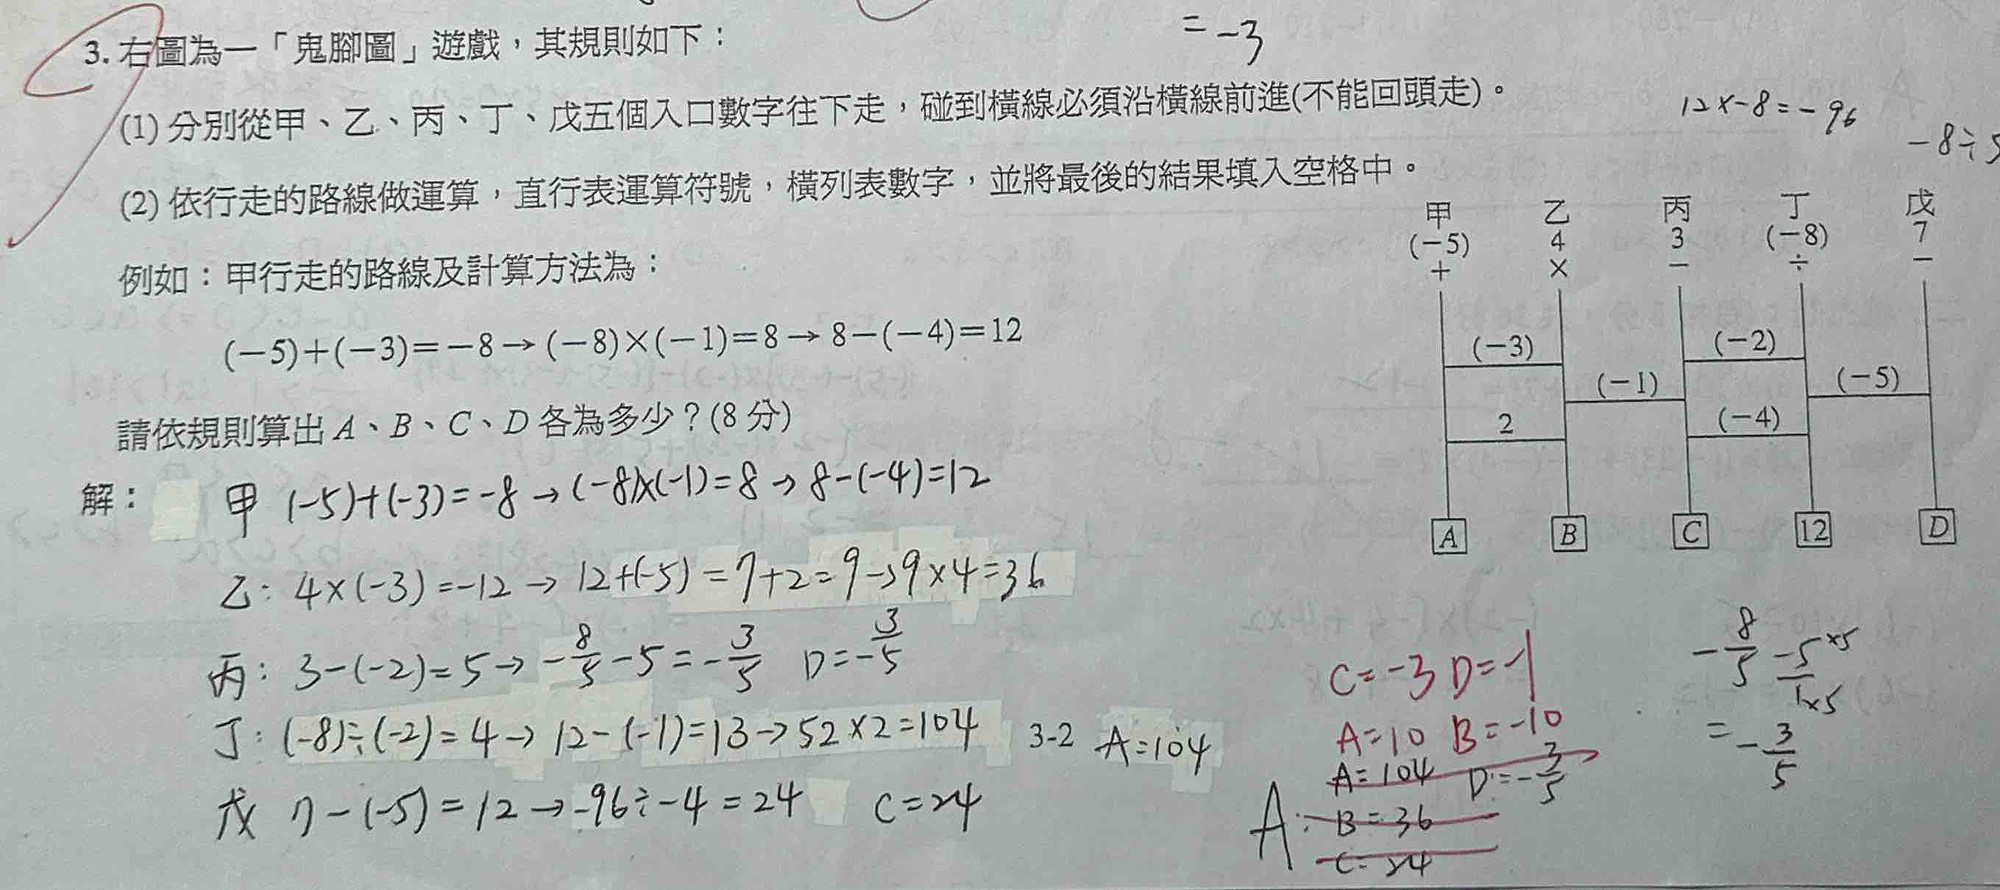 = -3
3. 右圖為一「鬼腳圖」遊戲，其規則如下：
(1) 分別從甲、乙、丙、丁、戊五個入口數字往下走，碰到橫線必須沿橫線前進(不能回頭走)。
12×-8=-96
-8÷5
(2) 依行走的路線做運算，直行表運算符號，橫列表數字，並將最後的結果填入空格中。
甲 乙 丙 丁 戊
(−5) 4 3 (−8) 7
+ × − ÷ −
例如：甲行走的路線及計算方法為：
(−5)+(−3)=−8→(−8)×(−1)=8→8−(−4)=12
(−3) (−2)
(−1) (−5)
2 (−4)
A B C 12 D
請依規則算出 A、B、C、D 各為多少？(8 分)
解：
甲 (-5)+(-3)=-8→(-8)×(-1)=8→8-(-4)=12
乙: 4×(-3)=-12→12+(-5)=7+2=9→9×4=36
丙: 3-(-2)=5→-8/5-5=-3/5 D=-3/5
丁: (-8)÷(-2)=4→12-(-1)=13→52×2=104 3-2 A=104
戊 7-(-5)=12→-96÷-4=24 C=24
C=-3 D=-1
A=10 B=-10
A=104 D=-3/5
A: B=36
C=24
-8/5 -5/1 ×5 ×5
= -3/5